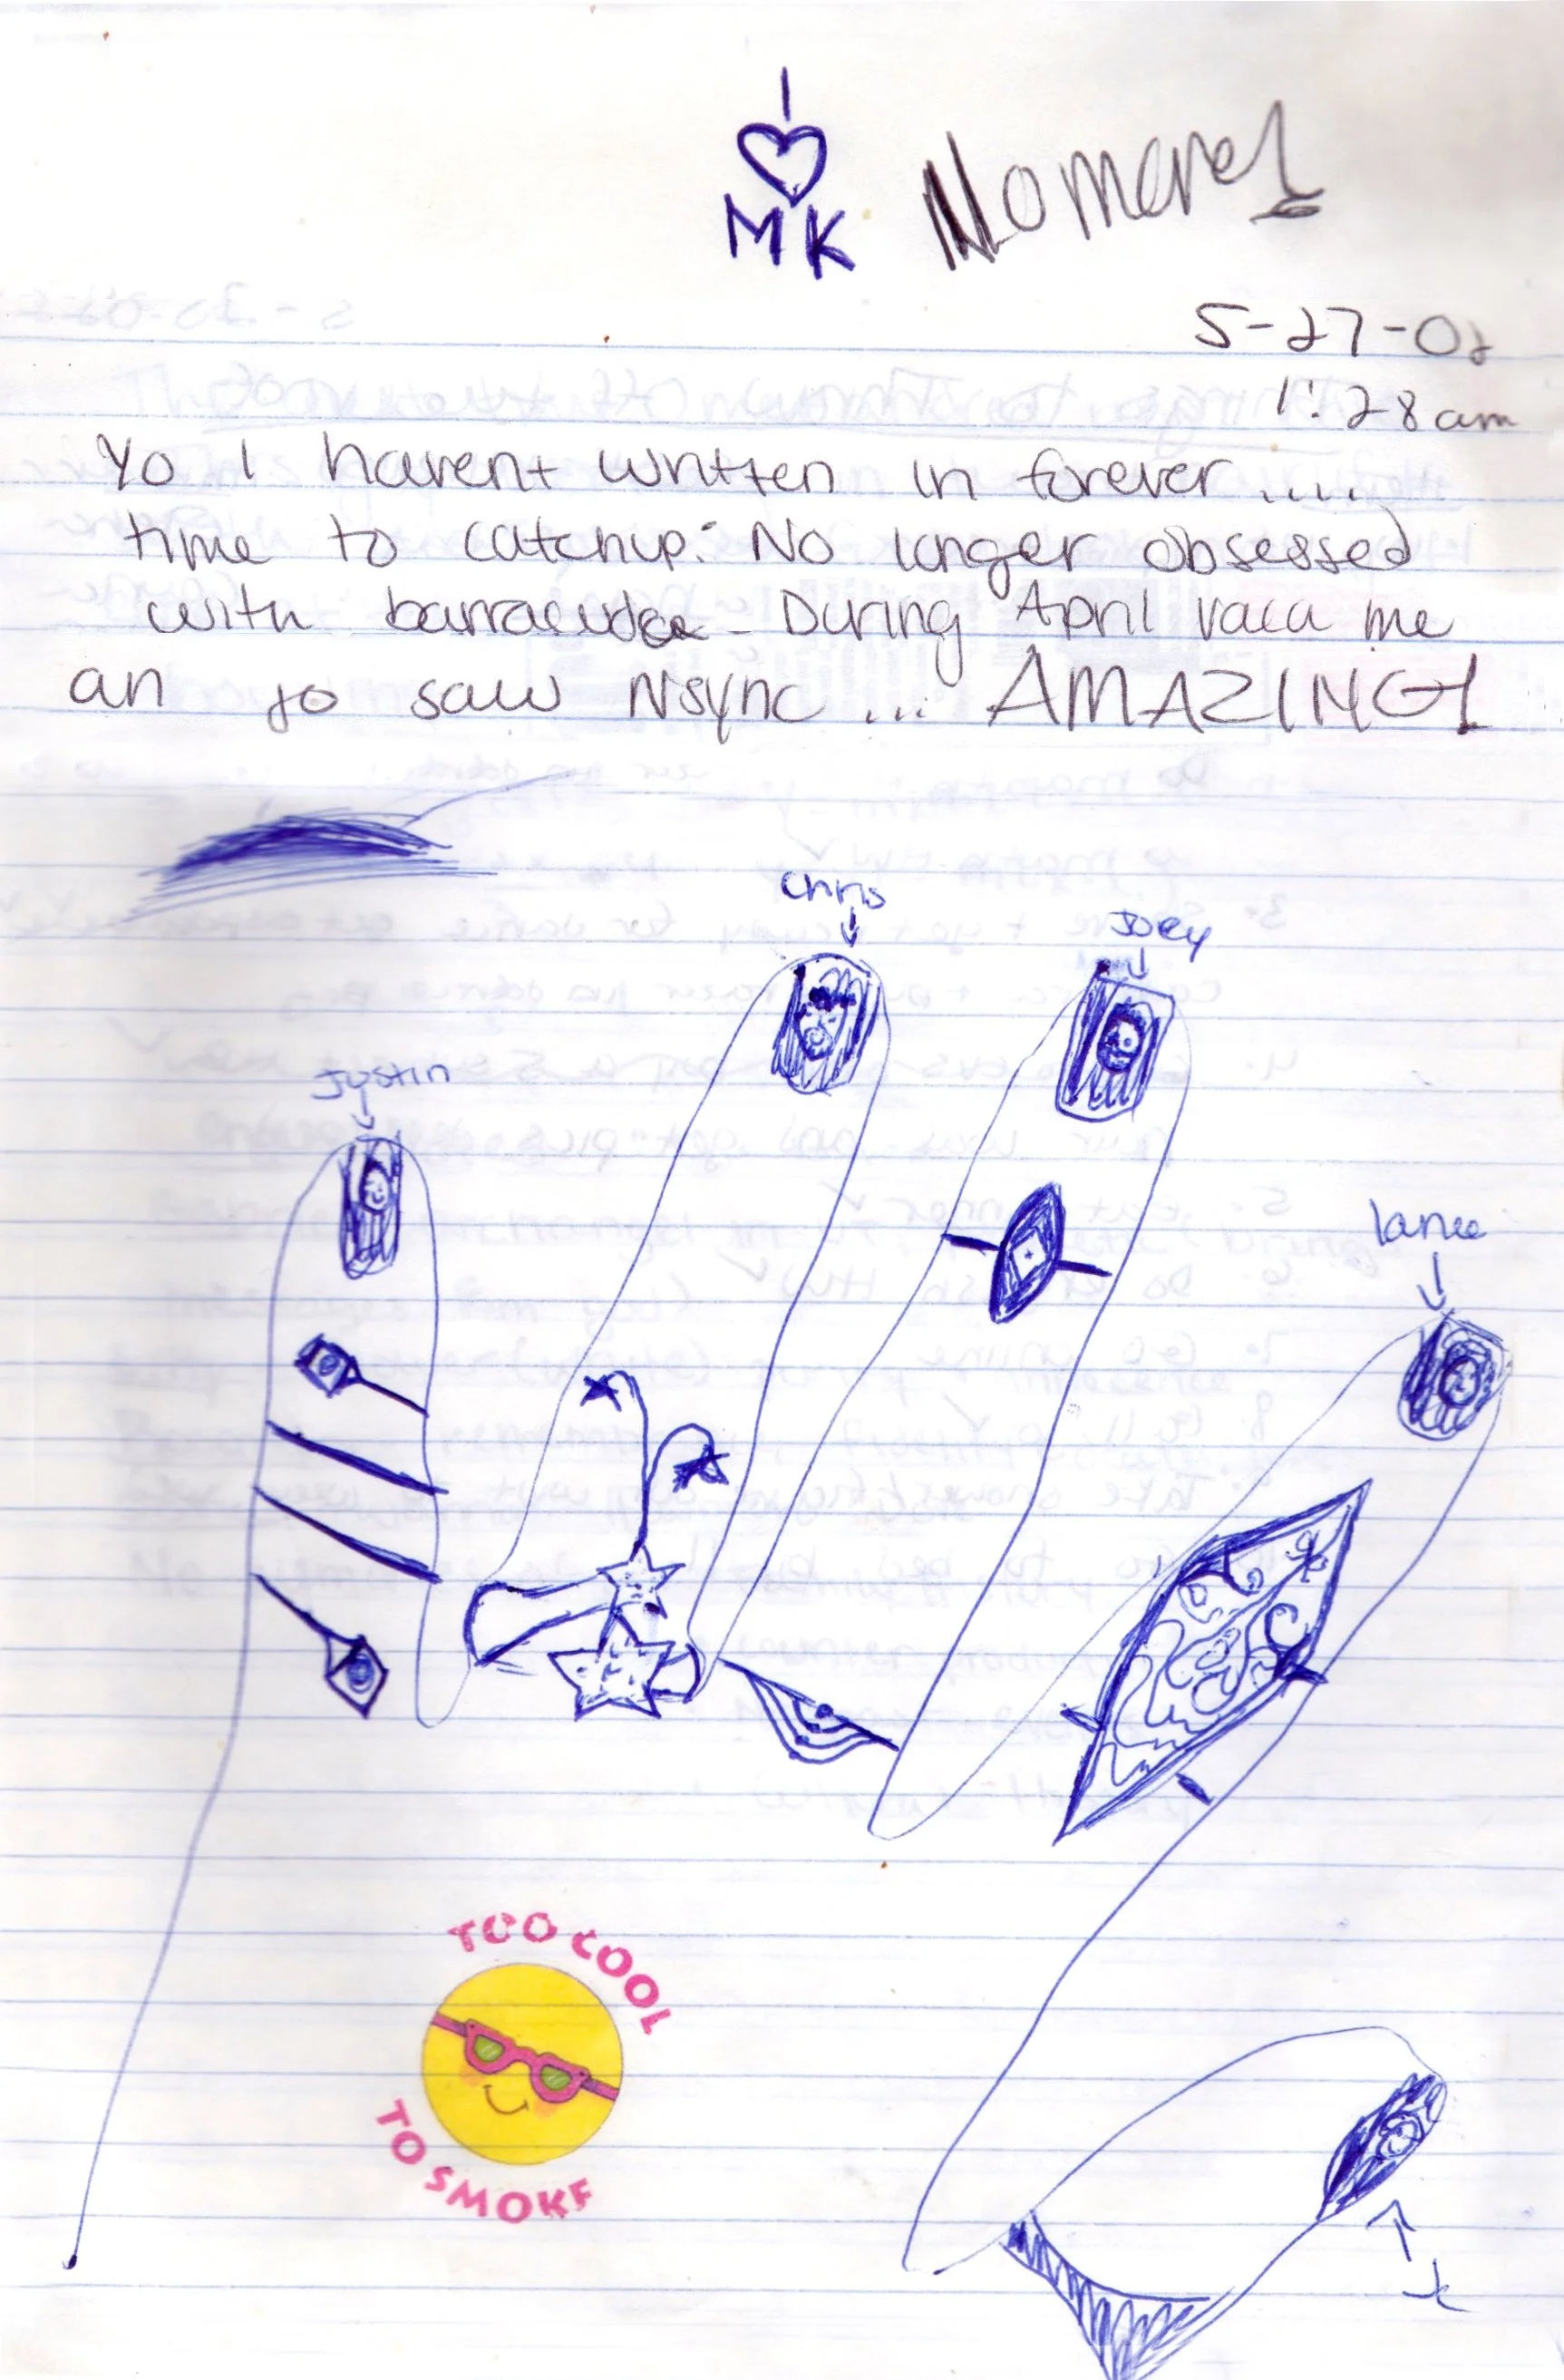 I
♡
MK
No more!
5-27-02
1:28am
Yo I havent written in forever....
time to catchup: No longer obsessed
with barracuda - During April vaca me
an jo saw Nsync ... AMAZING!
Chris
Joey
Justin
lance
TOO COOL
TO SMOKE